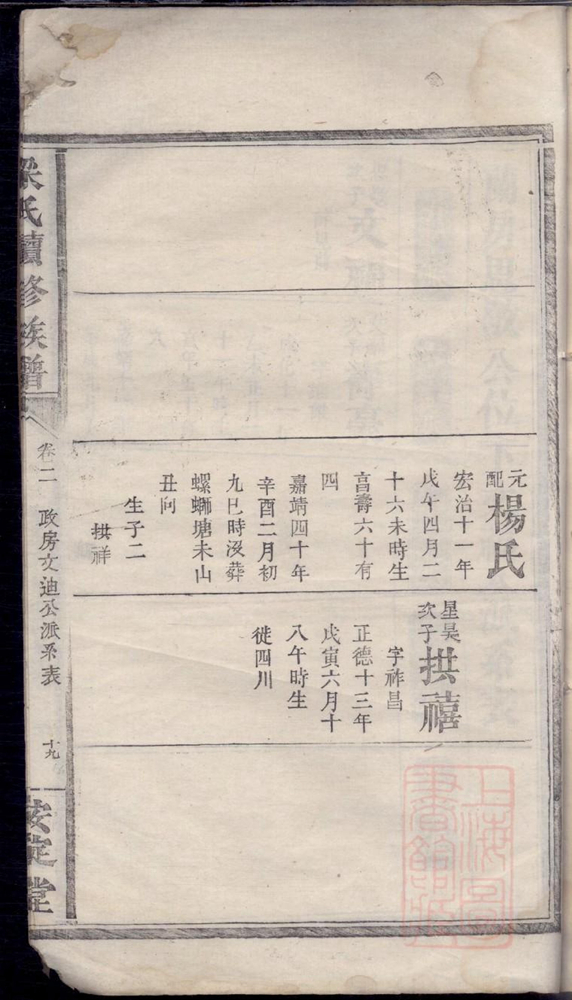 元配楊氏
宏治十一年
戊午四月二
十六未時生
亯壽六十有
四
嘉靖四十年
辛酉二月初
九巳時沒葬
螺螄塘未山
丑向
生子二
拱祥
星昊次子拱禧
字祚昌
正德十三年
戊寅六月十
八午時生
徙四川
梁氏續修族譜
卷二
政房文迪公派系表
十九
安定堂